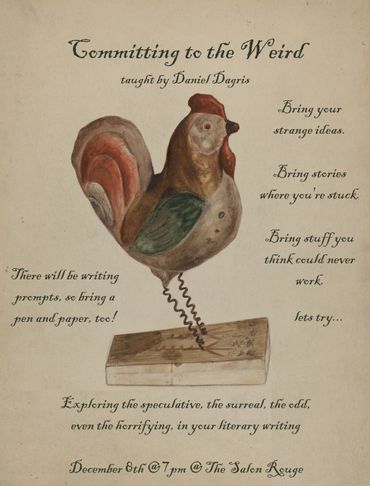 Committing to the Weird
taught by Daniel Dagris
Bring your
strange ideas.
Bring stories
where you're stuck.
Bring stuff you
think could never
work.
lets try...
There will be writing
prompts, so bring a
pen and paper, too!
Exploring the speculative, the surreal, the odd,
even the horrifying, in your literary writing
December 8th @7pm @ The Salon Rouge